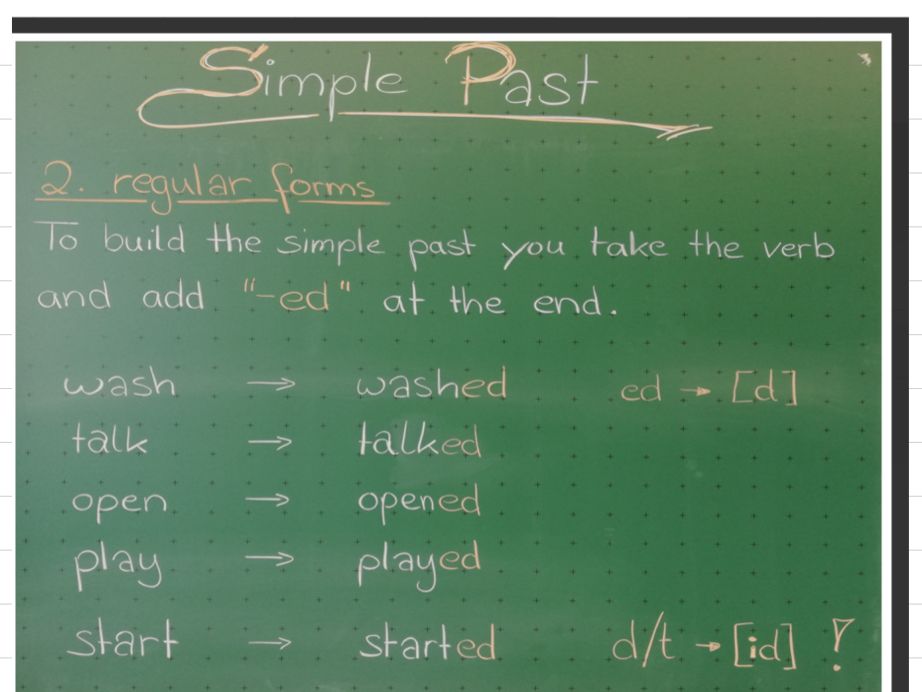 Simple Past
2. regular forms
To build the simple past you take the verb
and add "-ed" at the end.
wash → washed ed → [d]
talk → talked
open → opened
play → played
start → started d/t → [id] !